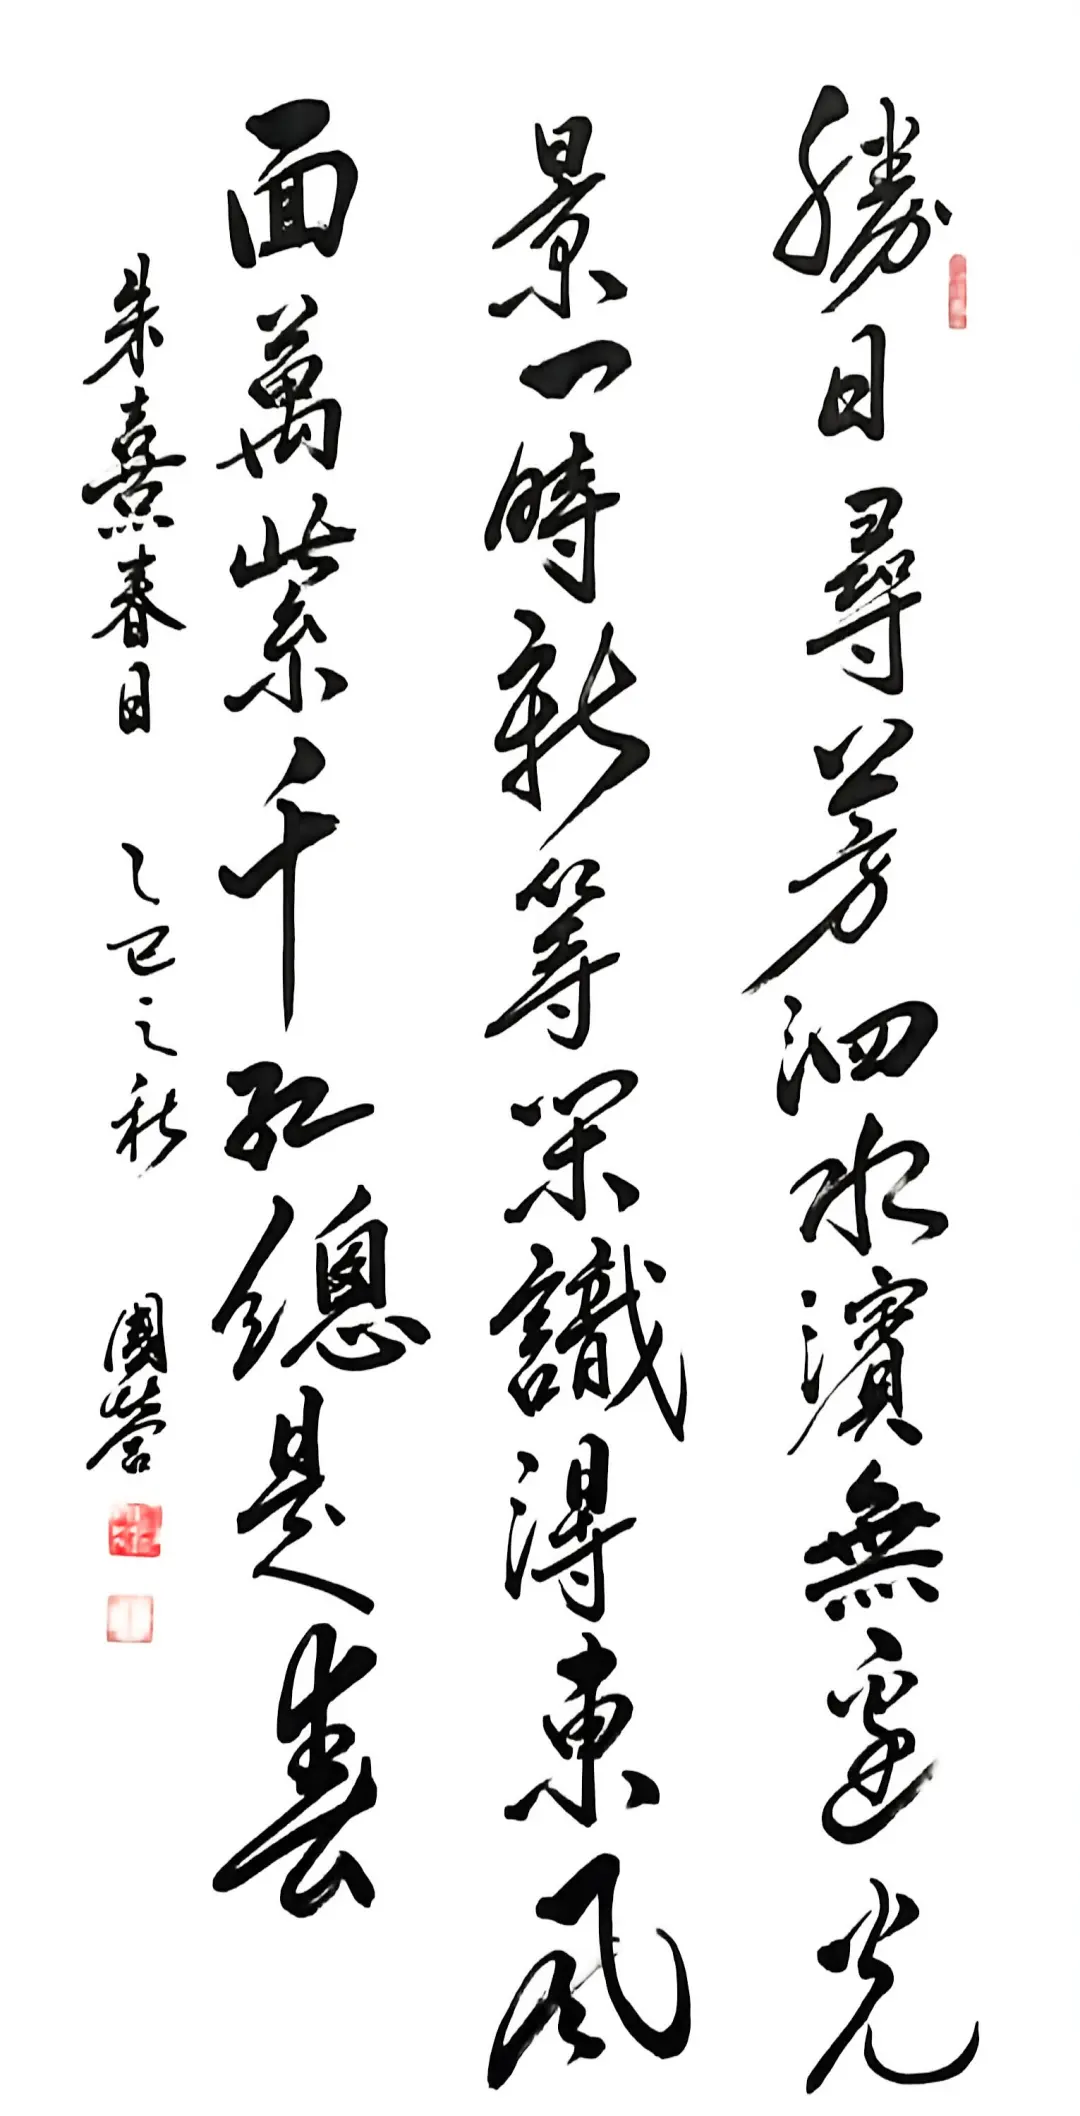 勝日尋芳泗水濱無邊光
景一時新等閑識得東風
面萬紫千紅總是春
朱熹春日 乙巳之秋 國營